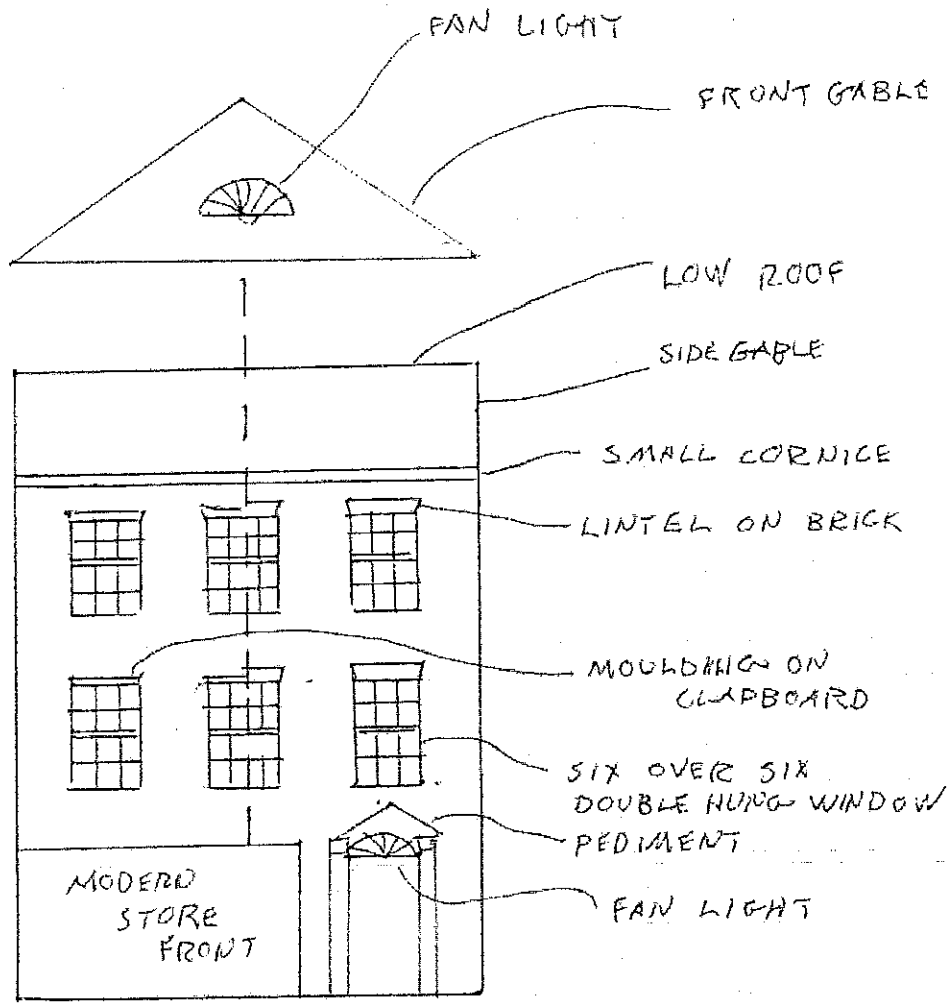 FAN LIGHT
FRONT GABLE
LOW ROOF
SIDE GABLE
SMALL CORNICE
LINTEL ON BRICK
MOULDING ON
CLAPBOARD
SIX OVER SIX
DOUBLE HUNG WINDOW
PEDIMENT
FAN LIGHT
MODERN
STORE
FRONT